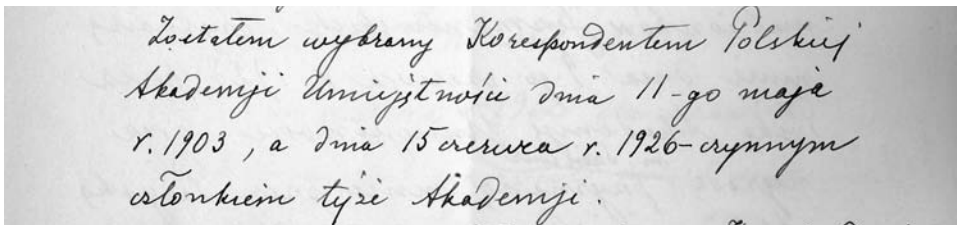 Zostałem wybrany Korespondentem Polskiej
Akademji Umiejętności dnia 11-go maja
r. 1903, a dnia 15 czerwca r. 1926-czynnym
członkiem tejże Akademji.